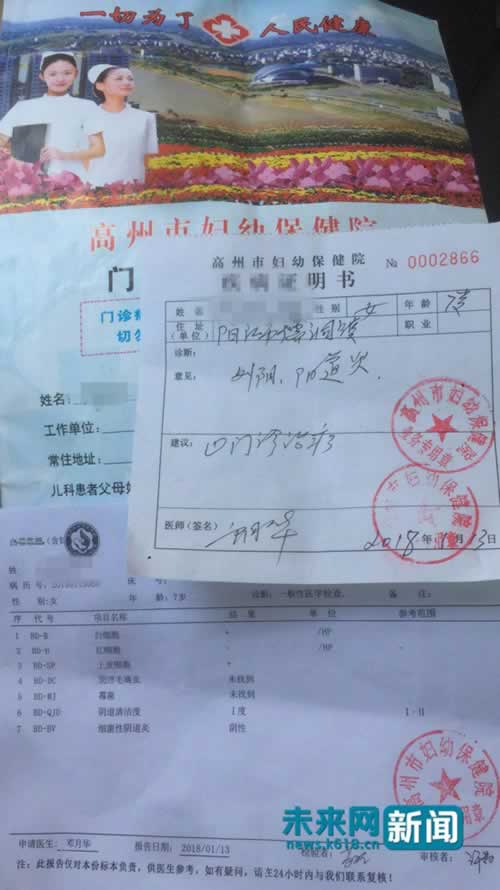 一切为了人民健康
高州市妇幼保健院
门
门诊病
切勿
姓名:
工作单位:
常住地址:
儿科患者父母姓
高州市妇幼保健院
№ 0002866
疾病证明书
姓名
性别 女 年龄
住址
(单位)
职业
诊断:
意见:
外阴、阴道炎
建议:
门诊治疗
医师(签名)
2018年1月13日
高州市妇幼保健院
医务专用章
高州市妇幼保健院
病历号:
性别:女 年龄:7岁 诊断:一般性医学检查、 备注:
序 代号 项目名称 结果 单位 参考范围
1 BD-B 白细胞 + /HP -
2 BD-H 红细胞 - /HP -
3 BD-SP 上皮细胞 +
4 BD-DC 阴道毛滴虫 未找到
5 BD-MJ 霉菌 未找到
6 BD-QJD 阴道清洁度 I度 I-II
7 BD-BV 细菌性阴道炎 阴性
高州市妇幼保健院
申请医生: 邓月华 报告日期:2018/01/13 检验者: 审核者:
注:此报告仅对本份标本负责,供医生参考,如有疑问,请在24小时内与我们联系复核!
未来网 新闻
news.k618.cn